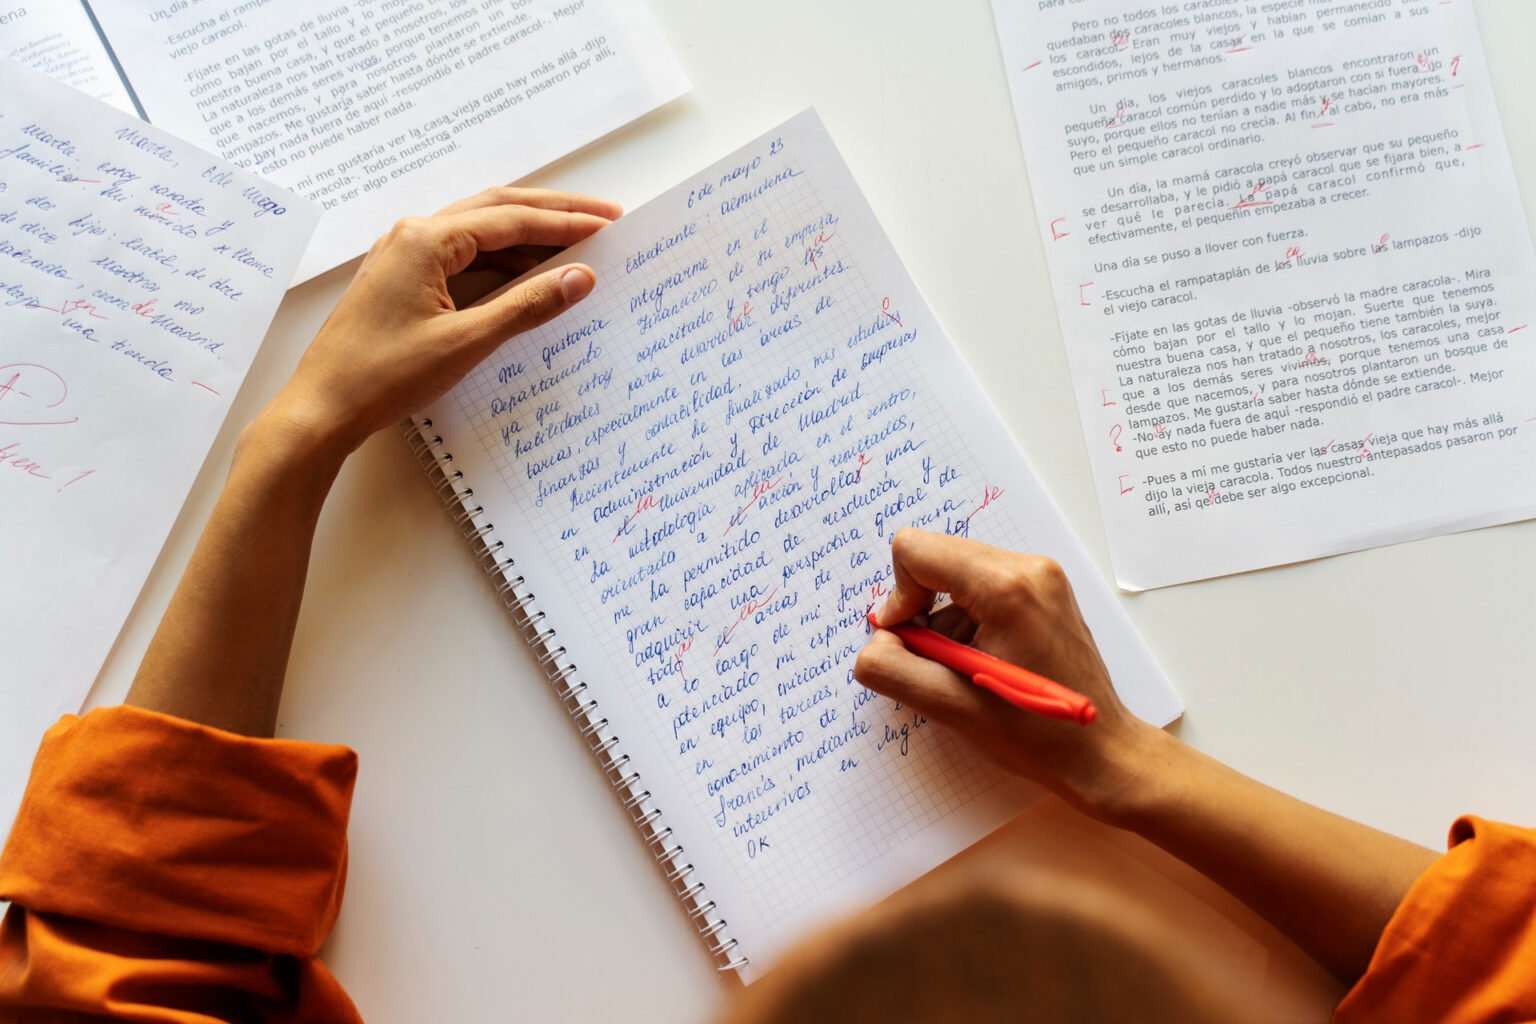 6 de mayo 23
Estudiante: Almudena
Me gustaría integrarme en el
Departamento Financiero de su empresa,
ya que estoy capacitado y tengo las
a
habilidades para desarrollar diferentes
tareas, especialmente en las áreas de
finanzas y contabilidad.
Recientemente he finalizado mis estudios
en administración y Dirección de Empresas
en el Universidad de Madrid
la
La metodología aplicada en el centro,
orientada a el acción y resultados,
la
mi ha permitido desarrollar una
gran capacidad de resolución y
adquirir una perspectiva global de
todo el áreas de la empresa.
la
a lo largo de mi he
potenciado mi
en equipo, iniciativa
en las tareas,
conocimiento de
francés, mediante
intensivos en
OK
Marta, 6 de Mayo
Marta. estoy casada y
familia Mi marido se llama
a
dos hijos: Isabel, de doce
de diez
cerca de Madrid.
en una tienda
A-
Bien!
Un día se
-Escucha el
viejo caracol.
-Fíjate en las gotas de lluvia
cómo bajan por el tallo y lo mojan.
nuestra buena casa, y que el pequeño
La naturaleza nos han tratado a nosotros, los
que a los demás seres vivos, porque tenemos una
que nacemos, y para nosotros plantaron un bosque
lampazos. Me gustaría saber hasta dónde se extiende.
-No hay nada fuera de aquí -respondió el padre caracol-. Mejor
esto no puede haber nada.
a mí me gustaría ver la casa vieja que hay más allá -dijo
caracola-. Todos nuestros antepasados pasaron por allí,
be ser algo excepcional.
Pero no todos los caracoles
quedaban dos caracoles blancos, la especie más
los caracol. Eran muy viejos y habían permanecido
escondidos, lejos de la casas en la que se comían a sus
amigos, primos y hermanos.
Un día, los viejos caracoles blancos encontraron un
pequeña caracol común perdido y lo adoptaron con si fuera ijo
suyo, porque ellos no tenían a nadie más y se hacían mayores.
Pero el pequeño caracol no crecía. Al fin al cabo, no era más
que un simple caracol ordinario.
Un día, la mamá caracola creyó observar que su pequeño
se desarrollaba, y le pidió a papá caracol que se fijara bien, a
ver qué le parecía. La papá caracol confirmó que,
efectivamente, el pequeñín empezaba a crecer.
Un día se puso a llover con fuerza.
-Escucha el rampataplán de los lluvia sobre las lampazos -dijo
el viejo caracol.
-Fíjate en las gotas de lluvia -observó la madre caracola-. Mira
cómo bajan por el tallo y lo mojan. Suerte que tenemos
nuestra buena casa, y que el pequeño tiene también la suya.
La naturaleza nos han tratado a nosotros, los caracoles, mejor
que a los demás seres vivimos, porque tenemos una casa
desde que nacemos, y para nosotros plantaron un bosque de
lampazos. Me gustaría saber hasta dónde se extiende.
-No ay nada fuera de aquí -respondió el padre caracol-. Mejor
que esto no puede haber nada.
-Pues a mí me gustaría ver las casas vieja que hay más allá
dijo la vieja caracola. Todos nuestro antepasados pasaron por
allí, así qe debe ser algo excepcional.